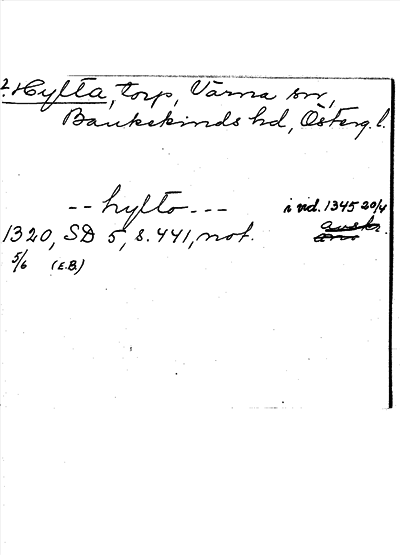 2. Hylta, torp, Värna sn,
Bankekinds hd, Österg. l.
-- hylto --- i vid. 1345 20/4
1320, SD 5, s. 441, not. avskr.
5/6 (E.B.)